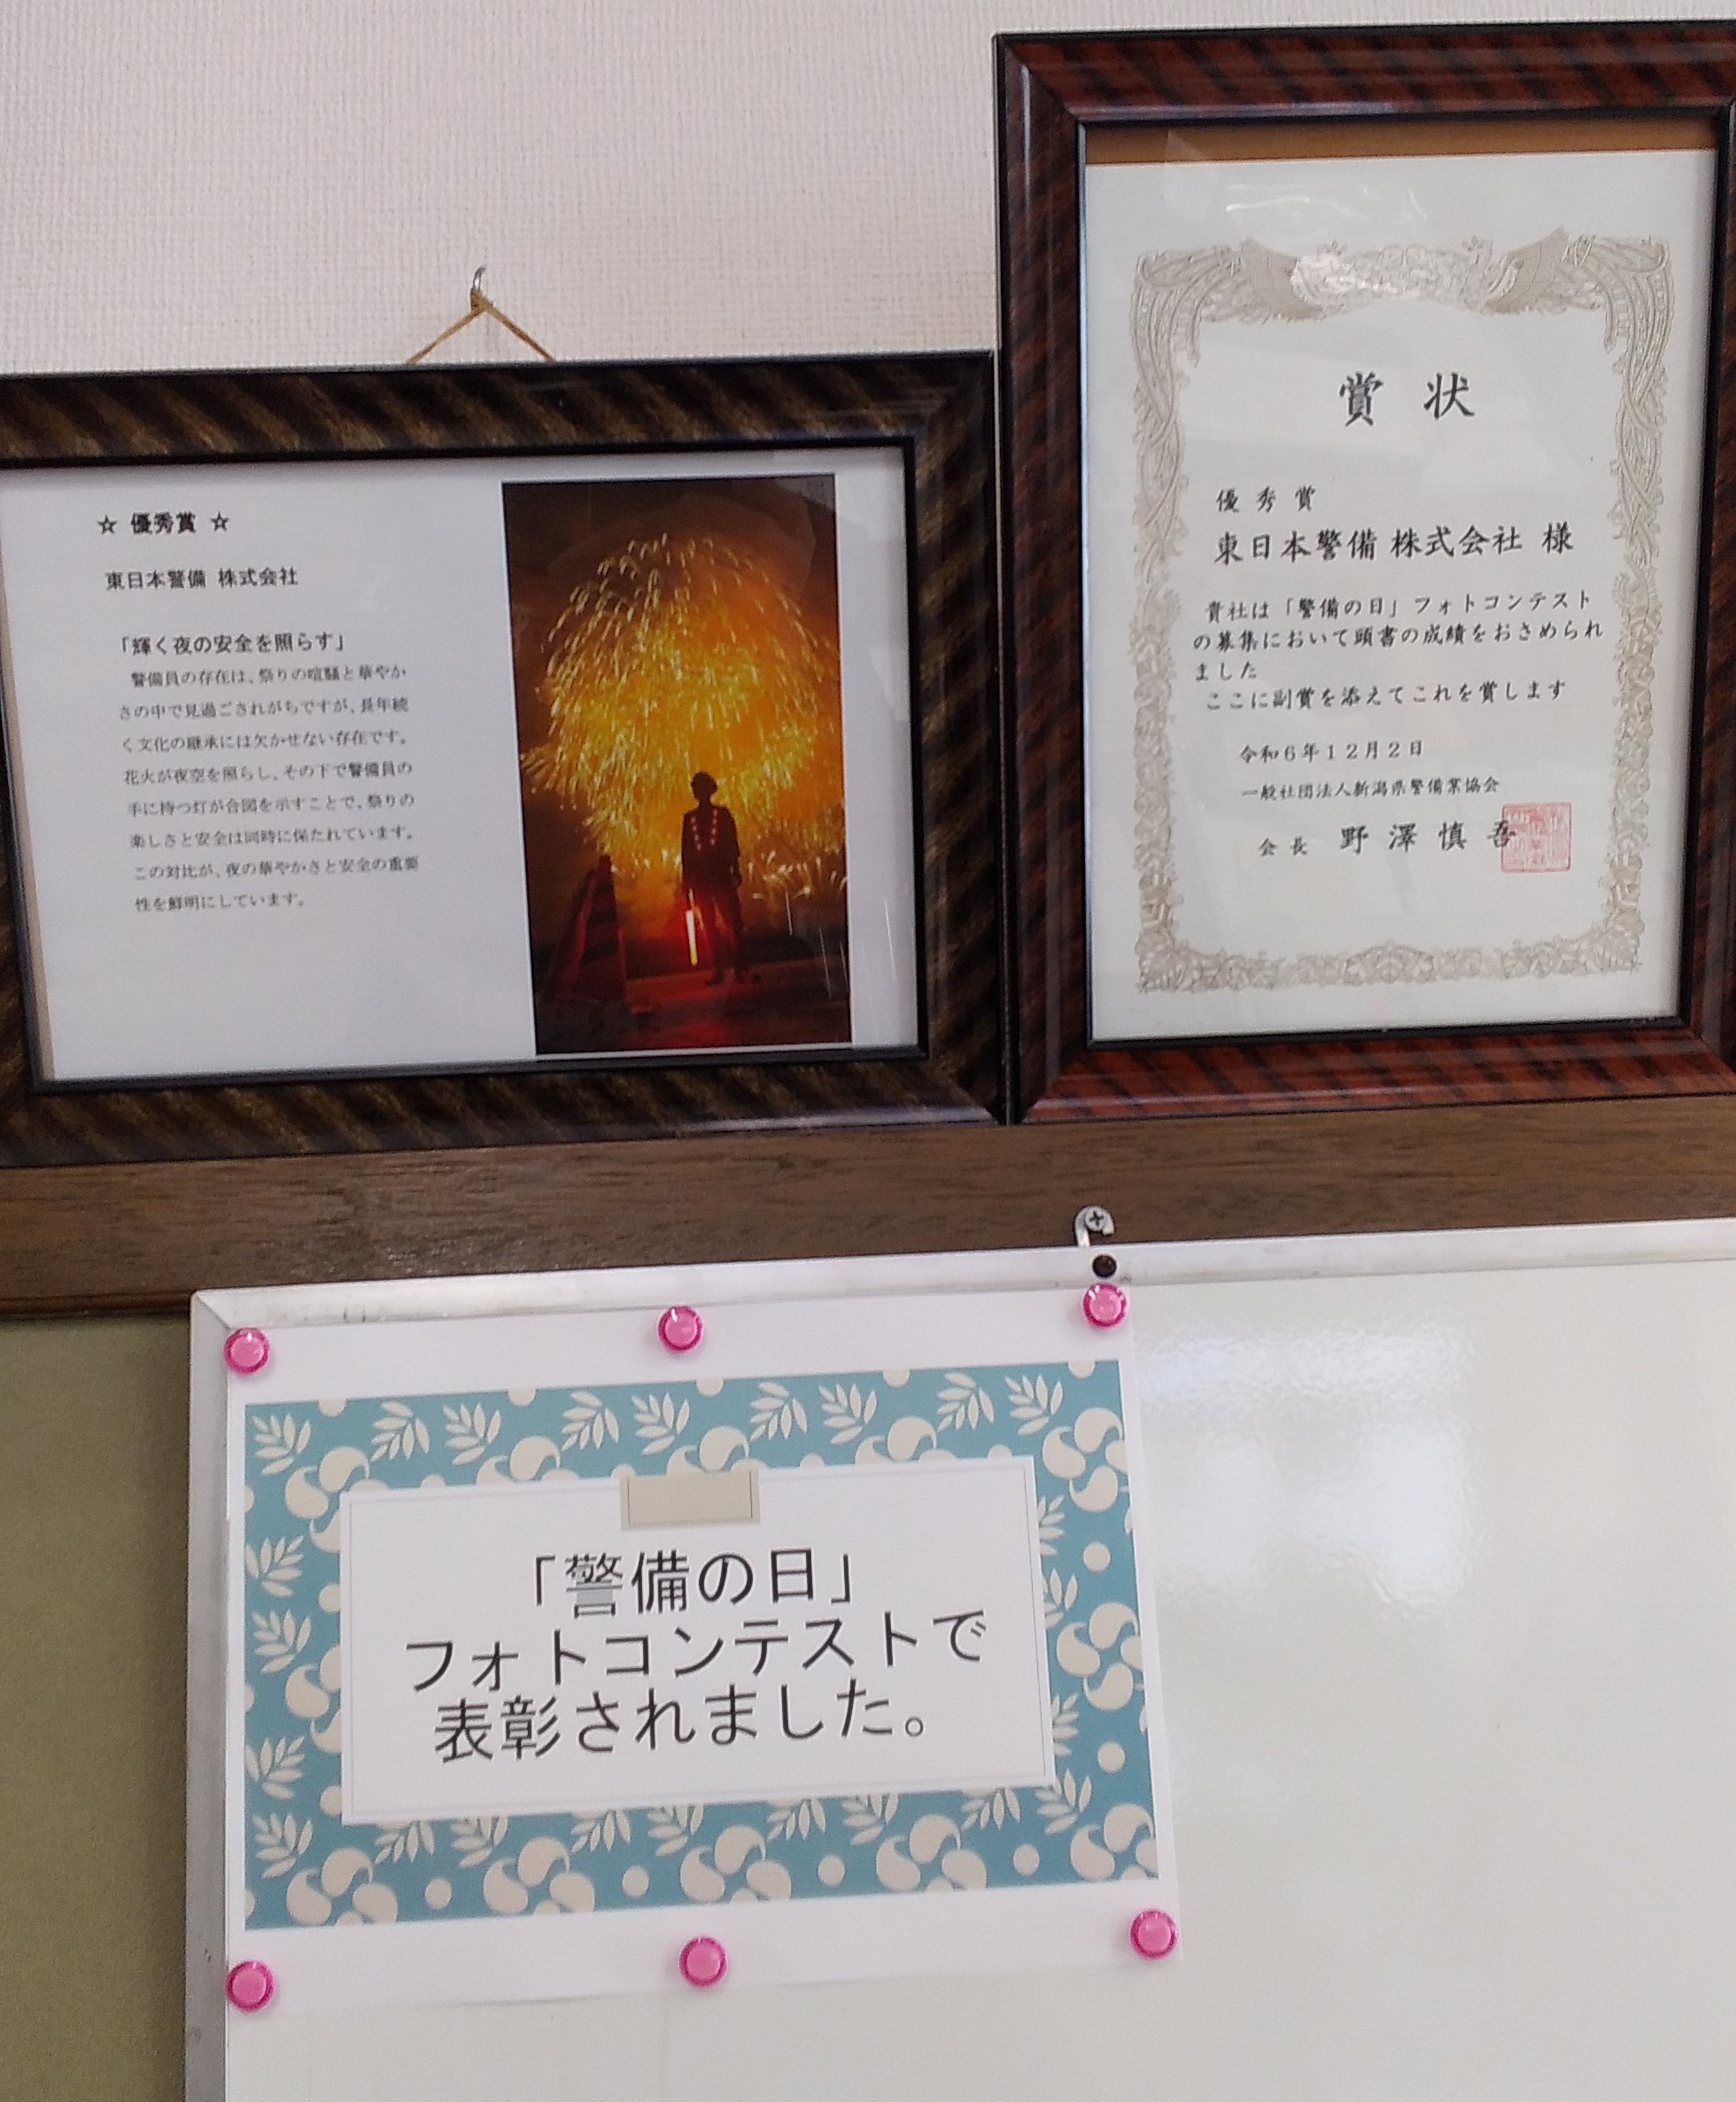 ☆ 優秀賞 ☆
東日本警備 株式会社
「輝く夜の安全を照らす」
警備員の存在は、祭りの喧騒と華やか
さの中で見過ごされがちですが、長年続
く文化の継承には欠かせない存在です。
花火が夜空を照らし、その下で警備員の
手に持つ灯が合図を示すことで、祭りの
楽しさと安全は同時に保たれています。
この対比が、夜の華やかさと安全の重要
性を鮮明にしています。
賞状
優秀賞
東日本警備 株式会社 様
貴社は「警備の日」フォトコンテスト
の募集において頭書の成績をおさめられ
ました
ここに副賞を添えてこれを賞します
令和6年12月2日
一般社団法人新潟県警備業協会
会長 野澤慎吾
「警備の日」
フォトコンテストで
表彰されました。